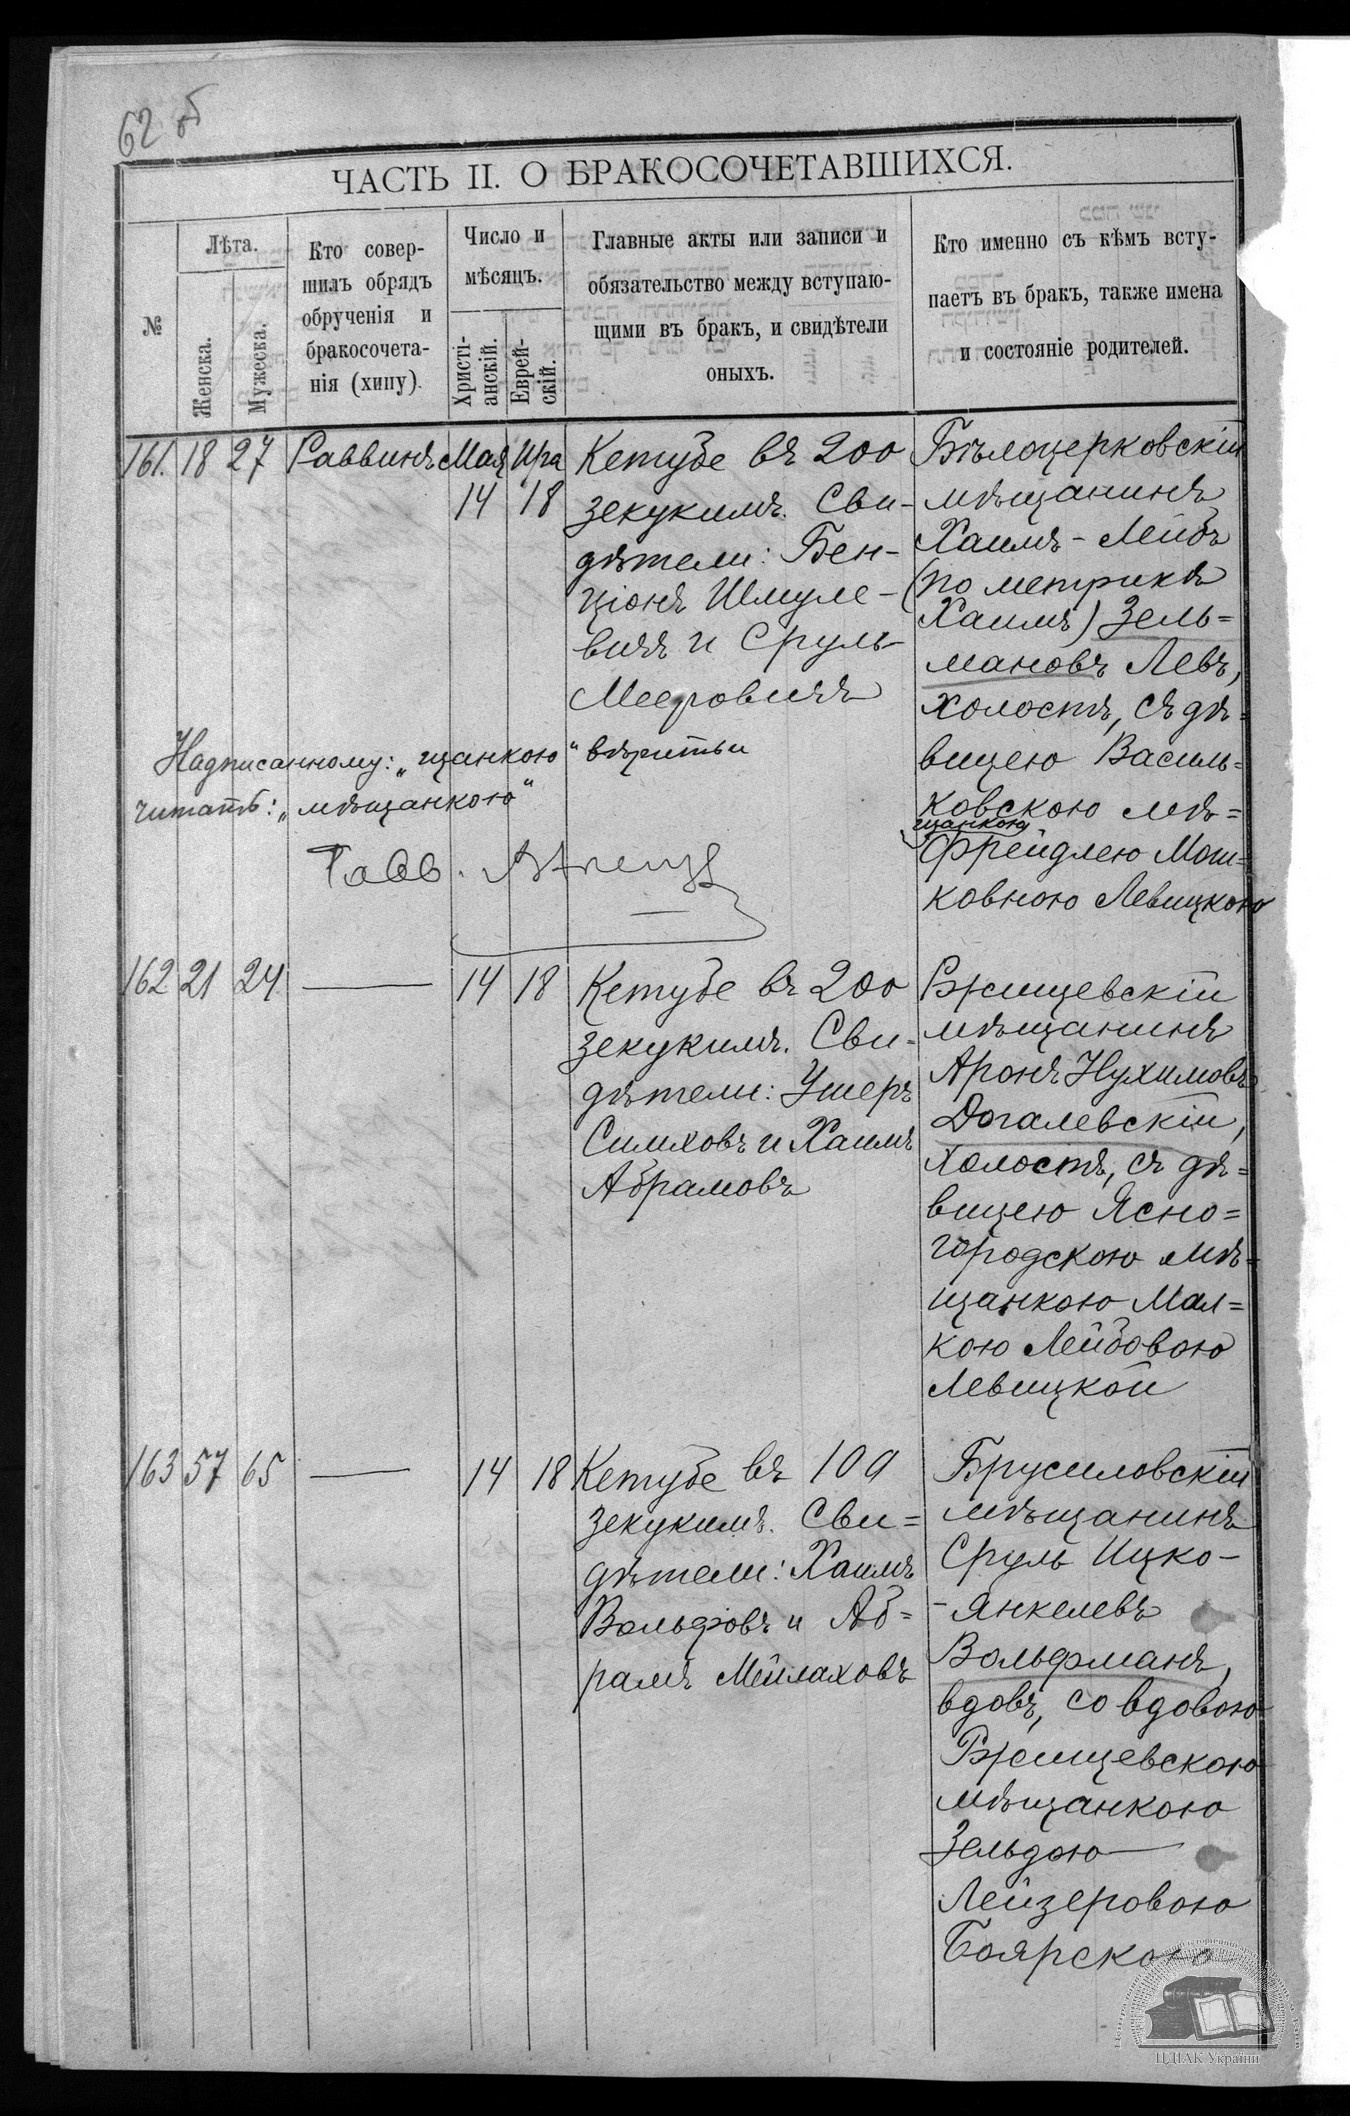 62 об
ЧАСТЬ II. О БРАКОСОЧЕТАВШИХСЯ.
№
Лѣта.
Женска.
Мужеска.
Кто совер-
шилъ обрядъ
обрученія и
бракосочета-
нія (хипу).
Число и
мѣсяцъ.
Христі-
анскій.
Еврей-
скій.
Главные акты или записи и
обязательство между вступаю-
щими въ бракъ, и свидѣтели
оныхъ.
Кто именно съ кѣмъ всту-
паетъ въ бракъ, также имена
и состояніе родителей.
161. 18 27 Раввинъ Мая Ира
14 18
Кетубе въ 200
зекукимъ. Сви-
дѣтели: Бен-
ціонъ Шмуле-
вичъ и Сруль
Мееровичъ
Бѣлоцерковскій
мѣщанинъ
Хаимъ-Лейбъ
(по метрикѣ
Хаимъ) Зель=
мановъ Левъ,
холостъ, съ дѣ=
вицею Василь=
ковскою мѣ=
щанкою
Фрейдлею Мош=
ковною Левицкою
Надписанному: „щанкою" вѣрить и
читать: „мѣщанкою"
Равв.
162 21 24 — 14 18
Кетубе въ 200
зекукимъ. Сви-
дѣтели: Ушеръ
Симховъ и Хаимъ
Абрамовъ
Ржищевскій
мѣщанинъ
Аронъ Нухимовъ
Догалевскій,
холостъ, съ дѣ=
вицею Ясно=
городскою мѣ=
щанкою Мал=
кою Лейбовою
Левицкой
163 57 65 — 14 18
Кетубе въ 100
зекукимъ. Сви=
дѣтели: Хаимъ
Вольфовъ и Аб=
рамъ Мейлаховъ
Брусиловскій
мѣщанинъ
Сруль Ицко-
-Янкелевъ
Вольфманъ,
вдовъ, со вдовою
Ржищевскою
мѣщанкою
Зельдою
Лейзеровою
Боярскою
ЦДІАК України